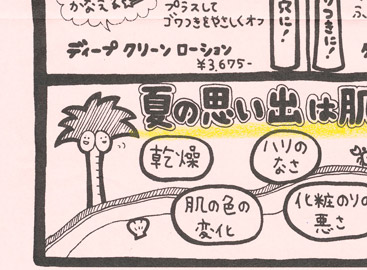 かなえる
プラスして
ゴワつきをやさしくオフ
穴に!
りつきに!
ディープ クリーン ローション
¥3,675-
夏の思い出は肌
乾燥
ハリの
なさ
肌の色の
変化
化粧のりの
悪さ